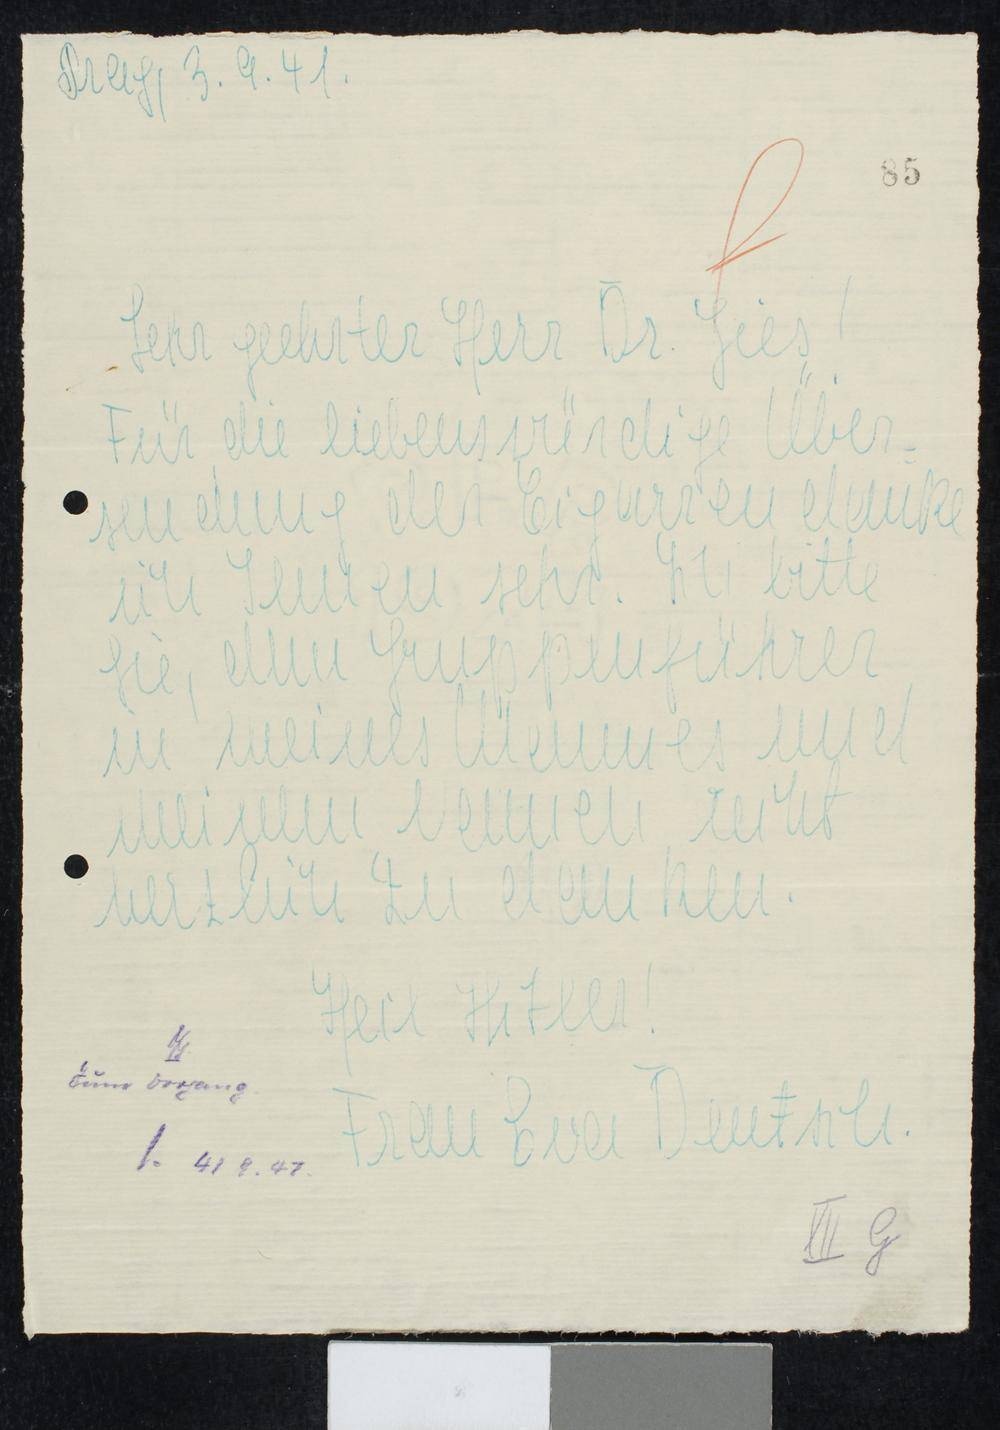 Prag, 3. 9. 41.
85
Sehr geehrter Herr Dr. Gies!
Für die liebenswürdige Über=
sendung der Cigarren danke
ich Ihnen sehr. Ich bitte
Sie, dem Gruppenführer
in meines Mannes und
meinem Namen recht
herzlich zu danken.
Heil Hitler!
zum Vorgang.
Frau Eva Deutsch.
XII G